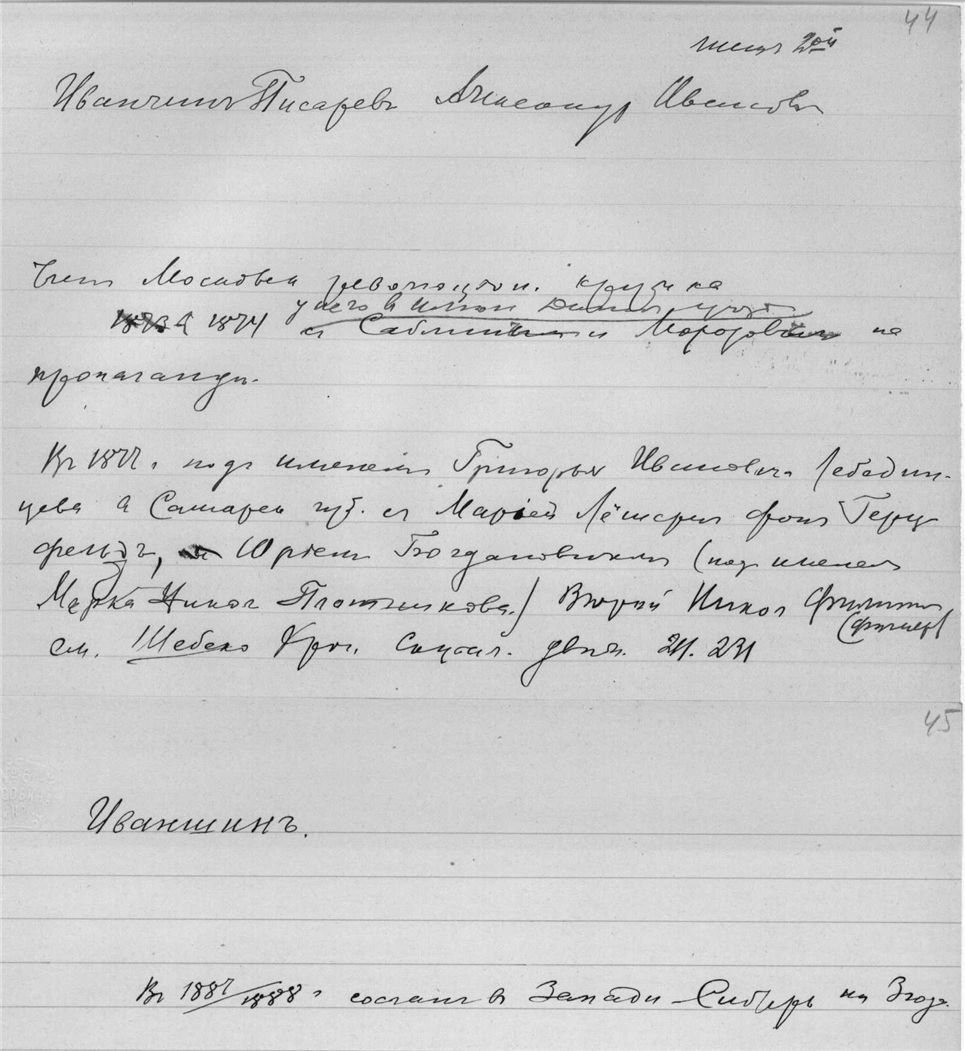 44
листъ 2ой
Иванчинъ Писаревъ Александръ Иванов
Член Московск революцион. кружка
у него в имении
1873 4 1874 с Саблиным и Морозовым на
пропаганду.
Въ 1877 г. подъ именемъ Григорья Ивановича Лебедин-
цева в Самарск губ. съ Маріей Лёшернъ фонъ Герц
фельдъ, Юріемъ Богдановичемъ (под именем
Марка Никол Плотникова) Верой Никол Филиппов
(Фигнер)
см. Шебеко Хрон. Социал. движ. 211. 231
45
Иваншинъ.
Въ 1887/1888 г сослан в Западн Сибирь на 3 года.